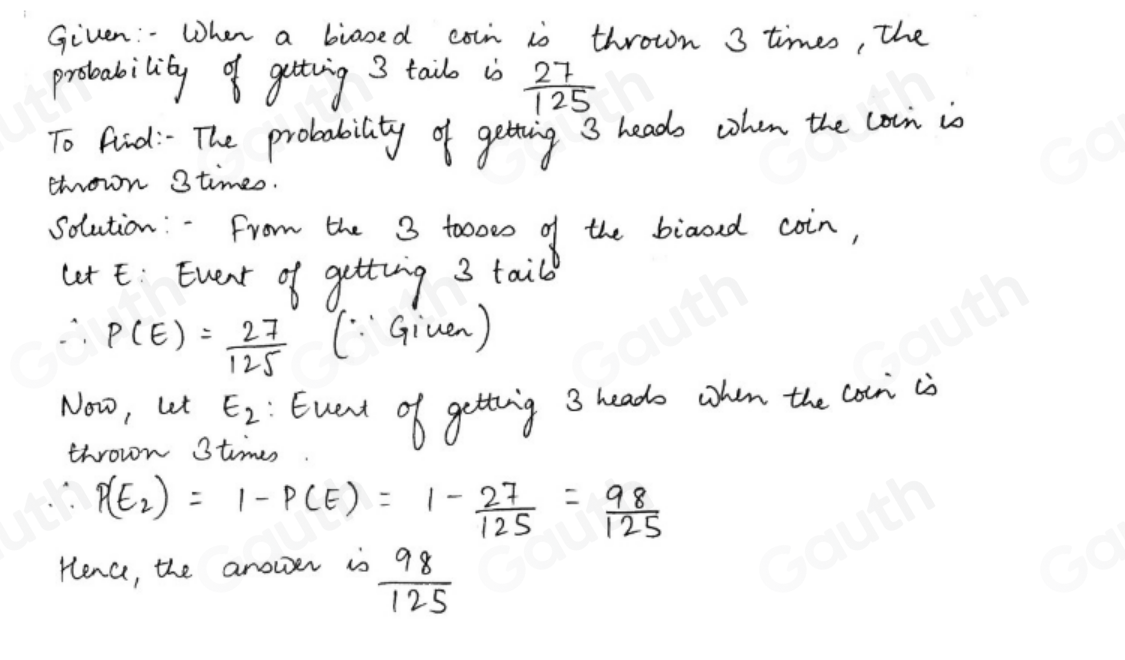 Given:- When a biased coin is thrown 3 times, the
probability of getting 3 tails is 27/125
To find:- The probability of getting 3 heads when the coin is
thrown 3 times.
Solution:- From the 3 tosses of the biased coin,
let E: Event of getting 3 tails
∴ P(E) = 27/125 (∵ Given)
Now, let E₂: Event of getting 3 heads when the coin is
thrown 3 times.
∴ P(E₂) = 1 - P(E) = 1 - 27/125 = 98/125
Hence, the answer is 98/125
Gauth